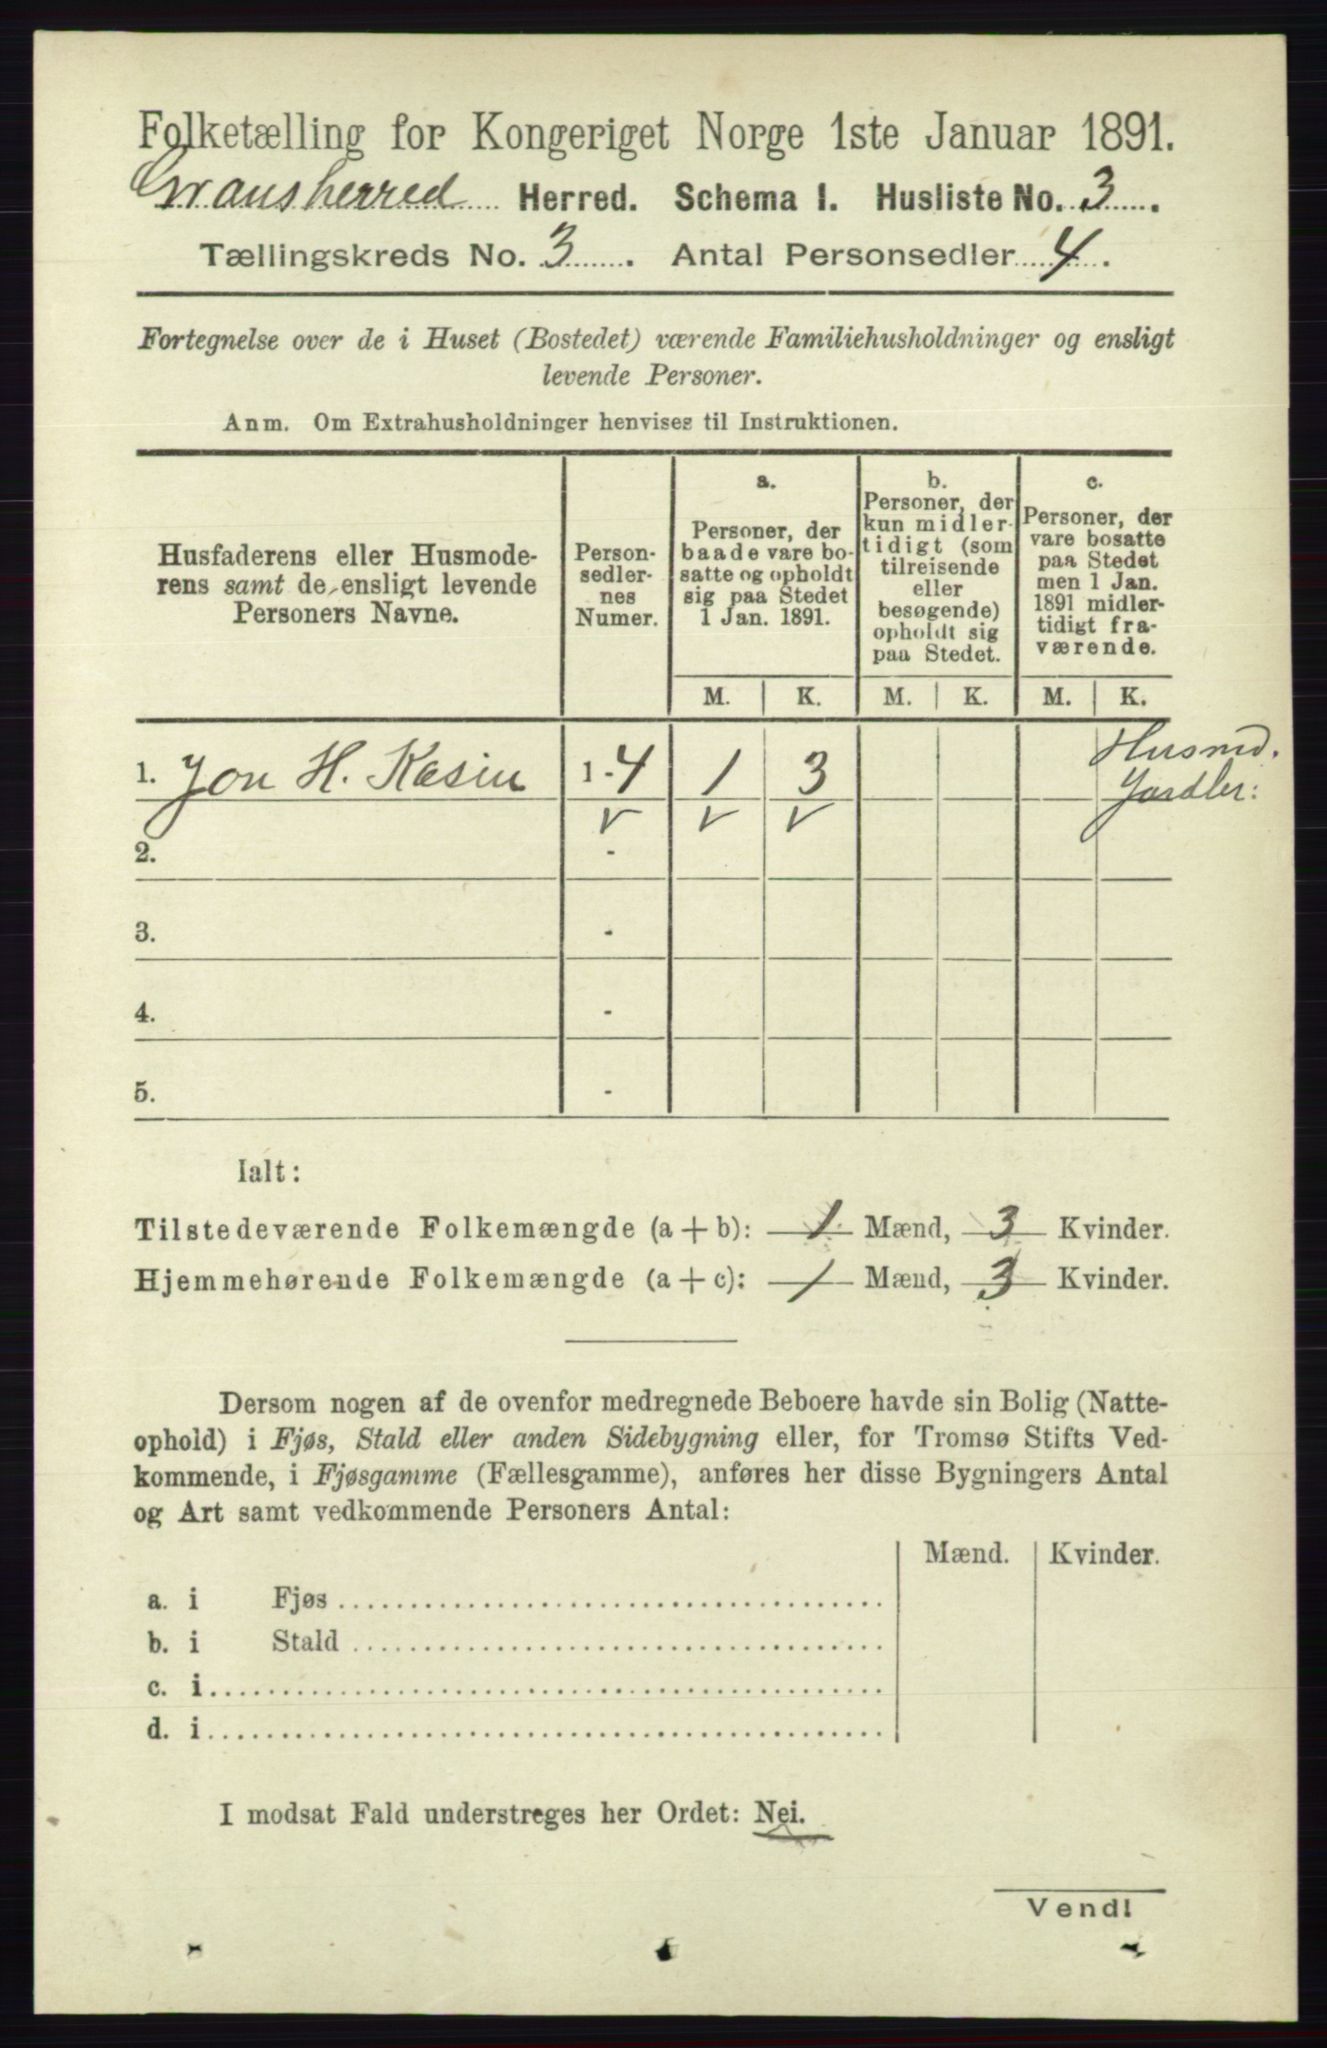 Folketælling for Kongeriget Norge 1ste Januar 1891.
Gransherred Herred. Schema I. Husliste No. 3.
Tællingskreds No. 3. Antal Personsedler 4.
Fortegnelse over de i Huset (Bostedet) værende Familiehusholdninger og ensligt
levende Personer.
Anm. Om Extrahusholdninger henvises til Instruktionen.
Husfaderens eller Husmode-
rens samt de ensligt levende
Personers Navne.
Person-
sedler-
nes
Numer.
a.
Personer, der
baade vare bo-
satte og opholdt
sig paa Stedet
1 Jan. 1891.
b.
Personer, der
kun midler-
tidigt (som
tilreisende
eller
besøgende)
opholdt sig
paa Stedet.
c.
Personer, der
vare bosatte
paa Stedet
men 1 Jan.
1891 midler-
tidigt fra-
værende.
M. K. M. K. M. K.
1. Jon H. Kasin 1-4 1 3 Husmd.
Jordbr:
2. -
3. -
4. -
5. -
Ialt:
Tilstedeværende Folkemængde (a + b): 1 Mænd, 3 Kvinder.
Hjemmehørende Folkemængde (a + c): 1 Mænd, 3 Kvinder.
Dersom nogen af de ovenfor medregnede Beboere havde sin Bolig (Natte-
ophold) i Fjøs, Stald eller anden Sidebygning eller, for Tromsø Stifts Ved-
kommende, i Fjøsgamme (Fællesgamme), anføres her disse Bygningers Antal
og Art samt vedkommende Personers Antal:
Mænd. Kvinder.
a. i Fjøs
b. i Stald
c. i
d. i
I modsat Fald understreges her Ordet: Nei.
Vend!